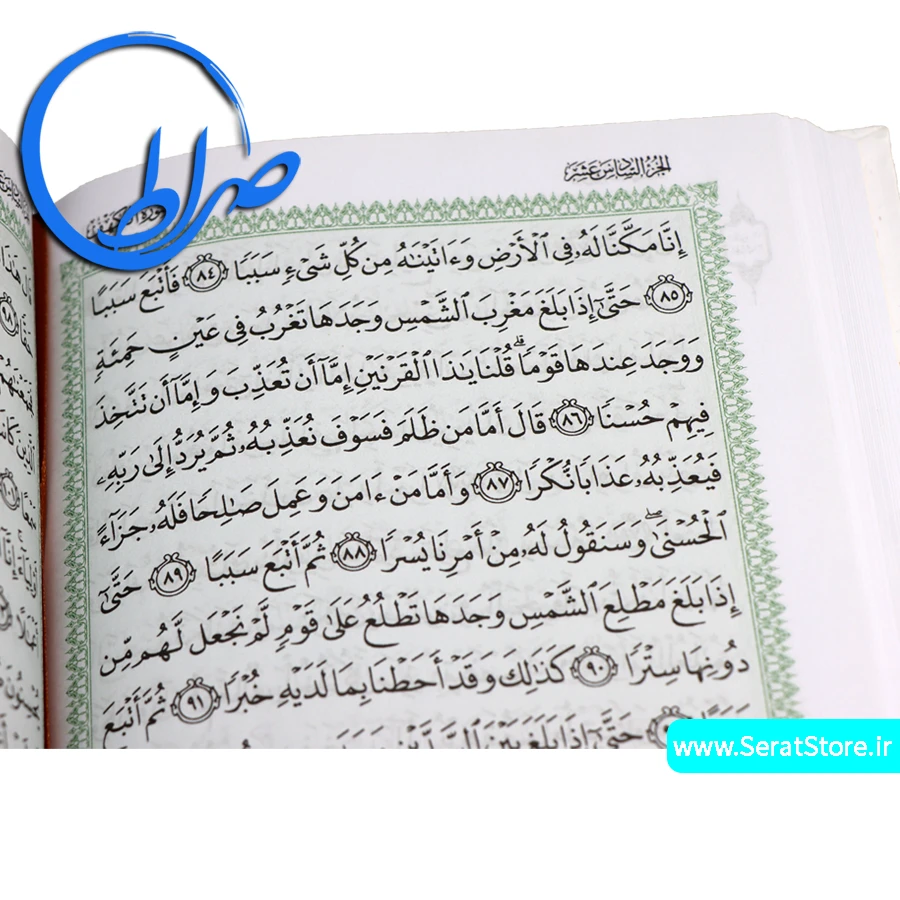 صراط
الجزء السادس عشر
سورة الكهف
إِنَّا مَكَّنَّا لَهُۥ فِي ٱلْأَرْضِ وَءَاتَيْنَٰهُ مِن كُلِّ شَيْءٍ سَبَبًا ٨٤ فَأَتْبَعَ سَبَبًا
٨٥ حَتَّىٰٓ إِذَا بَلَغَ مَغْرِبَ ٱلشَّمْسِ وَجَدَهَا تَغْرُبُ فِي عَيْنٍ حَمِئَةٍ
وَوَجَدَ عِندَهَا قَوْمًاۗ قُلْنَا يَٰذَا ٱلْقَرْنَيْنِ إِمَّآ أَن تُعَذِّبَ وَإِمَّآ أَن تَتَّخِذَ
فِيهِمْ حُسْنًا ٨٦ قَالَ أَمَّا مَن ظَلَمَ فَسَوْفَ نُعَذِّبُهُۥ ثُمَّ يُرَدُّ إِلَىٰ رَبِّهِۦ
فَيُعَذِّبُهُۥ عَذَابًا نُّكْرًا ٨٧ وَأَمَّا مَنْ ءَامَنَ وَعَمِلَ صَٰلِحًا فَلَهُۥ جَزَآءً
ٱلْحُسْنَىٰۖ وَسَنَقُولُ لَهُۥ مِنْ أَمْرِنَا يُسْرًا ٨٨ ثُمَّ أَتْبَعَ سَبَبًا ٨٩ حَتَّىٰٓ
إِذَا بَلَغَ مَطْلِعَ ٱلشَّمْسِ وَجَدَهَا تَطْلُعُ عَلَىٰ قَوْمٍ لَّمْ نَجْعَل لَّهُم مِّن
دُونِهَا سِتْرًا ٩٠ كَذَٰلِكَ وَقَدْ أَحَطْنَا بِمَا لَدَيْهِ خُبْرًا ٩١ ثُمَّ أَتْبَعَ
سَبَبًا حَتَّىٰٓ إِذَا بَلَغَ بَيْنَ ٱلسَّدَّيْنِ وَجَدَ
www.SeratStore.ir